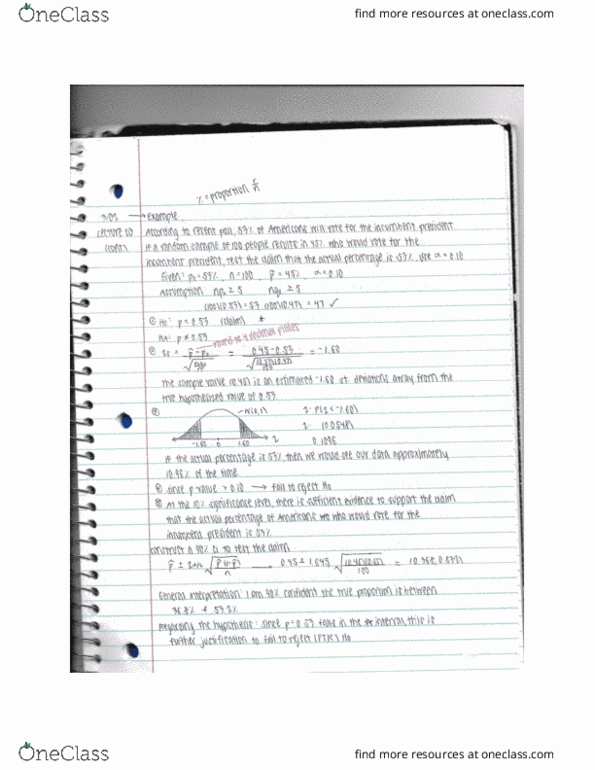 OneClass
find more resources at oneclass.com
% = proportion
→ Example
Lecture 20
(cont.)
According to recent poll, 53% of Americans will vote for the incumbent president
If a random sample of 100 people results in 45% who would vote for the
incumbent president, test the claim that the actual percentage is 53%. Use α = 0.10
Given: p₀ = 53% n = 100, p̂ = 45% α = 0.10
Assumption: np₀ ≥ 5 nq₀ ≥ 5
100(0.53) = 53 100(0.47) = 47 ✓
① H₀: p = 0.53 (claim)
HA: p ≠ 0.53
round to 4 decimal places
② = p̂ - p₀ = 0.45 - 0.53 = -1.60
The sample value (0.45) is an estimated -1.60 st. deviations away from the
true hypothesized value of 0.53.
~N(0,1) 2· P(z < -1.60)
2· (0.0548)
-1.60 0 1.60 z 0.1096
If the actual percentage is 53%, then we would see our data approximately
10.96% of the time.
④ Since p value > 0.10 → fail to reject H₀
⑤ At the 10% significance level, there is sufficient evidence to support the claim
that the actual percentage of Americans who would vote for the
incumbent president is 53%
Construct a 90% CI to test the claim
p̂ ± √ p̂(1-p̂) / n → 0.45 ± 1.645 √ (0.45)(0.55) / 100 = (0.368, 0.532)
General interpretation: I am 90% confident the true proportion is between
36.8% + 53.2%
Regarding the hypothesis: since p = 0.53 falls in the interval, this is
further justification to fail to reject (FTR) H₀
OneClass
find more resources at oneclass.com